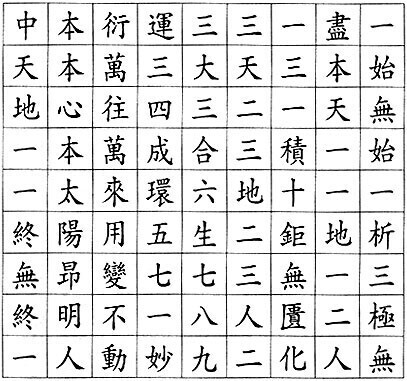 一始無始一析三極無
盡本天一一地一二人
一三一積十鉅無匱化
三天二三地二三人二
三大三合六生七八九
運三四成環五七一妙
衍萬往萬來用變不動
本本心本太陽昂明人
中天地一一終無終一